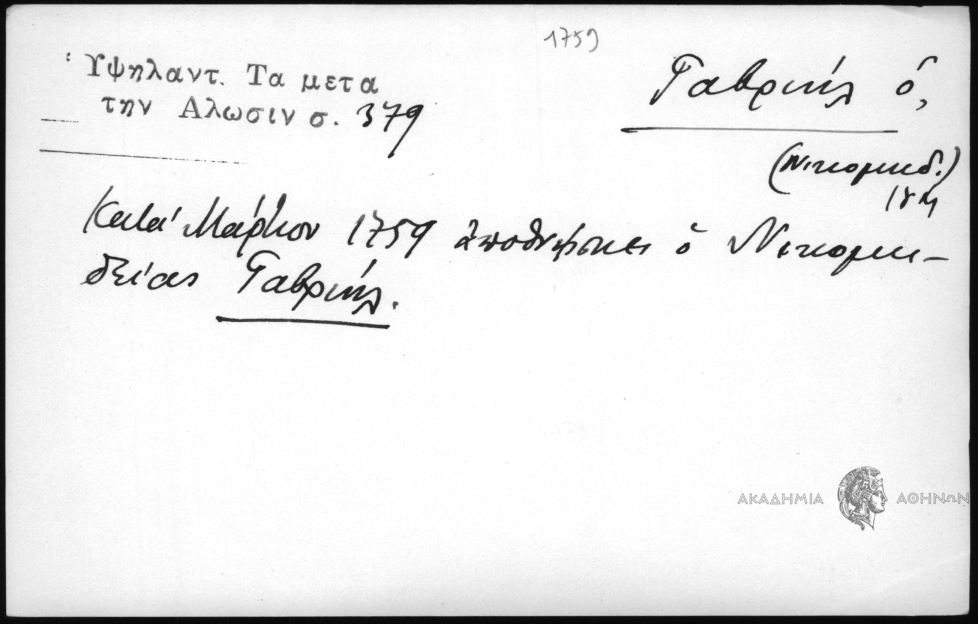 1759
Ὑψηλαντ. Τα μετα
την Αλωσιν σ. 379
Γαβριήλ ὁ,
(Νικομηδ.)
Κατά Μάρτιον 1759 ἀποθνήσκει ὁ Νικομη-
δείας Γαβριήλ.
ΑΚΑΔΗΜΙΑ ΑΘΗΝΩΝ